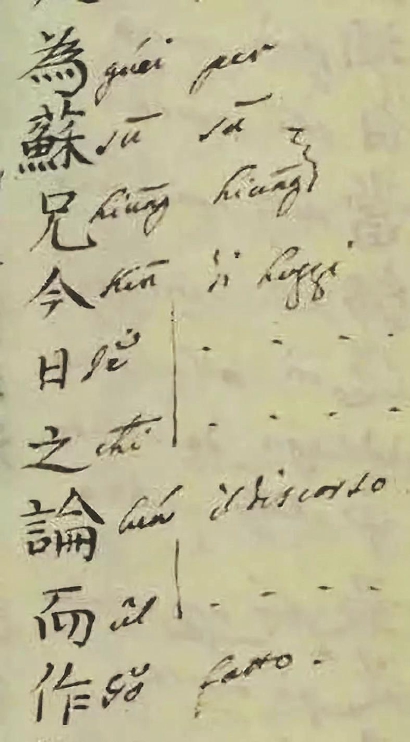 為 guéi per
蘇 sū sū
兄 hiūng hiūng
今 kīn di hoggi
日 gĕ - - - -
之 chī - - - -
論 lún il discorso
而 ûl - - - -
作 çŏ fatto.